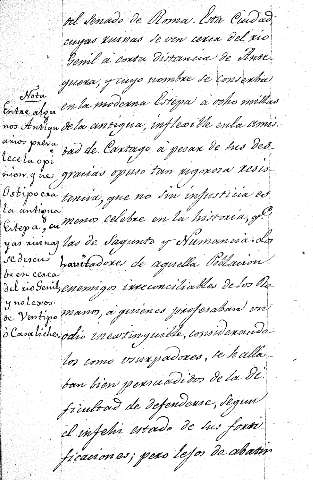 del Senado de Roma. Esta Ciudad,
cuyas ruinas se ven cerca del rio
Genil á corta distancia de Ante
quera, y cuyo nombre se conserba
en la moderna Estepa á ocho millas
de la antigua, inflexible en la amis
tad de Cartago á pesar de sus des
gracias opuso tan rigurosa resis
tencia, que no sin injusticia es
menos celebre en la historia, qe.
las de Sagunto y Numancia. Los
havitadores de aquella Poblacion
enemigos irreconciliables de los Ro
manos, á quienes profesaban un
odio inextinguible, considerando
los como usurpadores, se halla
ban bien persuadidos de la di
ficultad de defenderse, segun
el infeliz estado de sus forti
ficaciones; pero lejos de abatir
Nota
Entre algu
nos Antiqu
arios preva
lece la opi
nion, que
Astipo era
la antigua
Estepa, cu
yas ruinas
se descu
bren cerca
del rio Genil,
y no lexos
de Ventipo
ó Casaliche.